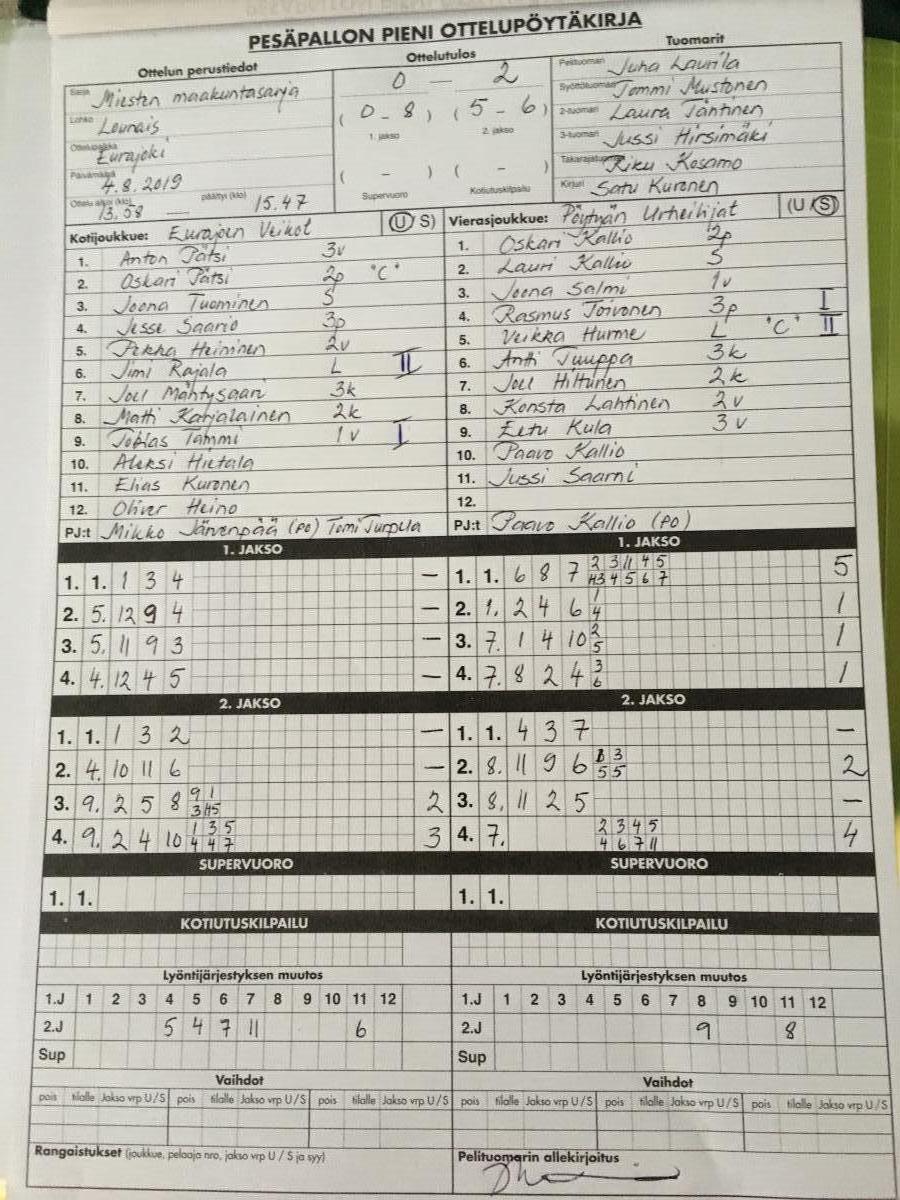 PESÄPALLON PIENI OTTELUPÖYTÄKIRJA
Ottelun perustiedot
Sarja Miesten maakuntasarja
Lohko Lounais
Ottelupaikka Eurajoki
Päivämäärä 4.8.2019
Ottelu alkoi (klo) 13.58 — päättyi (klo) 15.47
Ottelutulos
0 — 2
(0 - 8) (5 - 6)
1. jakso 2. jakso
( - ) ( - )
Supervuoro Kotiutuskilpailu
Tuomarit
Pelituomari Juha Laurila
Syöttötuomari Tommi Mustonen
2-tuomari Laura Täntinen
3-tuomari Jussi Hirsimäki
Takarajatuomari Riku Kosamo
Kirjuri Satu Kuronen
Kotijoukkue: Eurajoen Veikot (U S)
1. Anton Pätsi 3v
2. Oskari Pätsi 2p "C"
3. Joona Tuominen S
4. Jesse Saario 3p
5. Pekka Heininen 2v
6. Jimi Rajala L II
7. Joel Mäntysaari 3k
8. Matti Karjalainen 2k
9. Tobias Tammi 1v I
10. Aleksi Hietala
11. Elias Kuronen
12. Oliver Heino
PJ:t Mikko Järvenpää (PO) Tomi Turpela
Vierasjoukkue: Pöytyän Urheilijat (U S)
1. Oskari Kallio 2p
2. Lauri Kallio S
3. Joona Salmi 1v
4. Rasmus Toivonen 3p I
5. Veikka Hurme L "C" II
6. Antti Tuuppa 3k
7. Joel Hiltunen 2k
8. Konsta Lahtinen 2v
9. Eetu Kula 3v
10. Paavo Kallio
11. Jussi Saarni
12.
PJ:t Paavo Kallio (PO)
1. JAKSO
1. 1. 1 3 4 —
2. 5. 12 9 4 —
3. 5. 11 9 3 —
4. 4. 12 4 5 —
1. JAKSO
2 3 11 4 5
1. 1. 6 8 7 5
4 5 6 7
1
2. 1. 2 4 6 1
4
2
3. 7. 1 4 10 1
5
3
4. 7. 8 2 4 1
6
2. JAKSO
1. 1. 1 3 2 —
2. 4. 10 11 6 —
9 1
3. 9. 2 5 8 2
3
1 3 5
4. 9. 2 4 10 3
4 4 7
2. JAKSO
1. 1. 4 3 7 —
3
2. 8. 11 9 6 2
5 5
3. 8. 11 2 5 —
2 3 4 5
4. 7. 4
4 6 7 11
SUPERVUORO
1. 1.
SUPERVUORO
1. 1.
KOTIUTUSKILPAILU
KOTIUTUSKILPAILU
Lyöntijärjestyksen muutos
1.J 1 2 3 4 5 6 7 8 9 10 11 12
2.J 5 4 7 11 6
Sup
Lyöntijärjestyksen muutos
1.J 1 2 3 4 5 6 7 8 9 10 11 12
2.J 9 8
Sup
Vaihdot
pois tilalle Jakso vrp U/S pois tilalle Jakso vrp U/S pois tilalle Jakso vrp U/S
Vaihdot
pois tilalle Jakso vrp U/S pois tilalle Jakso vrp U/S pois tilalle Jakso vrp U/S
Rangaistukset (joukkue, pelaaja nro, jakso vrp U / S ja syy)
Pelituomarin allekirjoitus